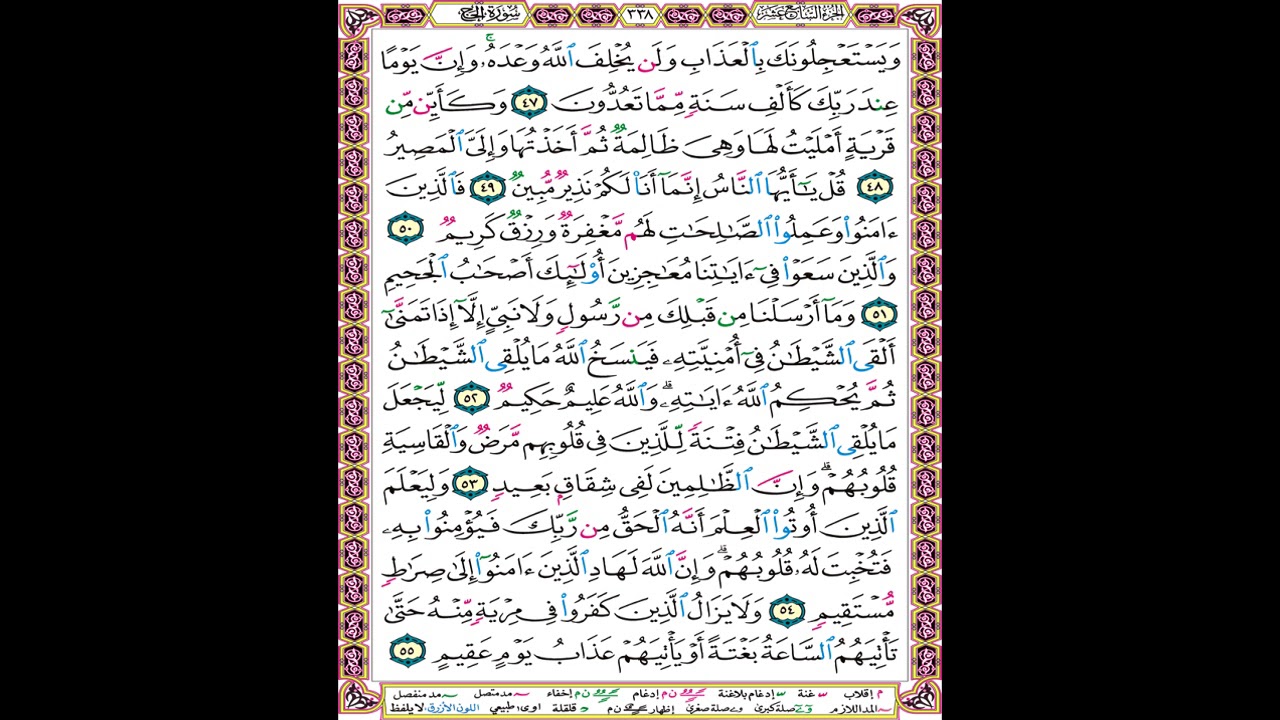 الجزء السابع عشر ٣٣٨ سورة الحج
وَيَسْتَعْجِلُونَكَ بِالْعَذَابِ وَلَن يُخْلِفَ اللَّهُ وَعْدَهُۥۚ وَإِنَّ يَوْمًا
عِندَ رَبِّكَ كَأَلْفِ سَنَةٍ مِّمَّا تَعُدُّونَ ٤٧ وَكَأَيِّن مِّن
قَرْيَةٍ أَمْلَيْتُ لَهَا وَهِيَ ظَالِمَةٌ ثُمَّ أَخَذْتُهَا وَإِلَيَّ الْمَصِيرُ
٤٨ قُلْ يَٰٓأَيُّهَا النَّاسُ إِنَّمَآ أَنَا۠ لَكُمْ نَذِيرٌ مُّبِينٌ ٤٩ فَالَّذِينَ
ءَامَنُوا وَعَمِلُوا الصَّٰلِحَٰتِ لَهُم مَّغْفِرَةٌ وَرِزْقٌ كَرِيمٌ ٥٠
وَالَّذِينَ سَعَوْا فِيٓ ءَايَٰتِنَا مُعَٰجِزِينَ أُو۟لَٰٓئِكَ أَصْحَٰبُ الْجَحِيمِ
٥١ وَمَآ أَرْسَلْنَا مِن قَبْلِكَ مِن رَّسُولٍ وَلَا نَبِيٍّ إِلَّآ إِذَا تَمَنَّىٰٓ
أَلْقَى الشَّيْطَٰنُ فِيٓ أُمْنِيَّتِهِۦ فَيَنسَخُ اللَّهُ مَا يُلْقِي الشَّيْطَٰنُ
ثُمَّ يُحْكِمُ اللَّهُ ءَايَٰتِهِۦۗ وَاللَّهُ عَلِيمٌ حَكِيمٌ ٥٢ لِّيَجْعَلَ
مَا يُلْقِي الشَّيْطَٰنُ فِتْنَةً لِّلَّذِينَ فِي قُلُوبِهِم مَّرَضٌ وَالْقَاسِيَةِ
قُلُوبُهُمْۗ وَإِنَّ الظَّٰلِمِينَ لَفِي شِقَاقٍ بَعِيدٍ ٥٣ وَلِيَعْلَمَ
الَّذِينَ أُوتُوا الْعِلْمَ أَنَّهُ الْحَقُّ مِن رَّبِّكَ فَيُؤْمِنُوا بِهِۦ
فَتُخْبِتَ لَهُۥ قُلُوبُهُمْۗ وَإِنَّ اللَّهَ لَهَادِ الَّذِينَ ءَامَنُوٓا إِلَىٰ صِرَٰطٍ
مُّسْتَقِيمٍ ٥٤ وَلَا يَزَالُ الَّذِينَ كَفَرُوا فِي مِرْيَةٍ مِّنْهُ حَتَّىٰ
تَأْتِيَهُمُ السَّاعَةُ بَغْتَةً أَوْ يَأْتِيَهُمْ عَذَابُ يَوْمٍ عَقِيمٍ ٥٥
م إقلاب غنة إدغام بلاغنة ن م إدغام ن م إخفاء مد متصل مد منفصل
المد اللازم صلة كبرى صلة صغرى إظهار ن م قلقلة اوى طبيعي اللون الأزرق لا يلفظ